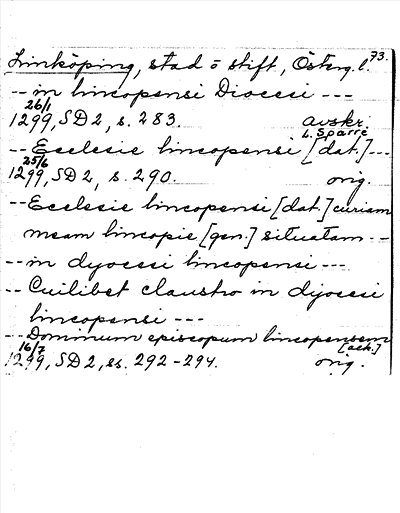 73.
Linköping, stad o stift, Österg. l.
-- in lincopensi Diocesi ---
26/1
1299, SD2, s. 283. avskr.
L. Sparre
-- Ecclesie lincopensi [dat.] ---
25/6
1299, SD2, s. 290. orig.
-- Ecclesie lincopensi [dat.] curiam
meam lincopie [gen.] situatam --
-- in dyocesi lincopensi ---
-- Cuilibet claustro in dyocesi
lincopensi ---
-- Dominum episcopum lincopensem
[ack.]
16/7
1299, SD2, ss. 292-294. orig.